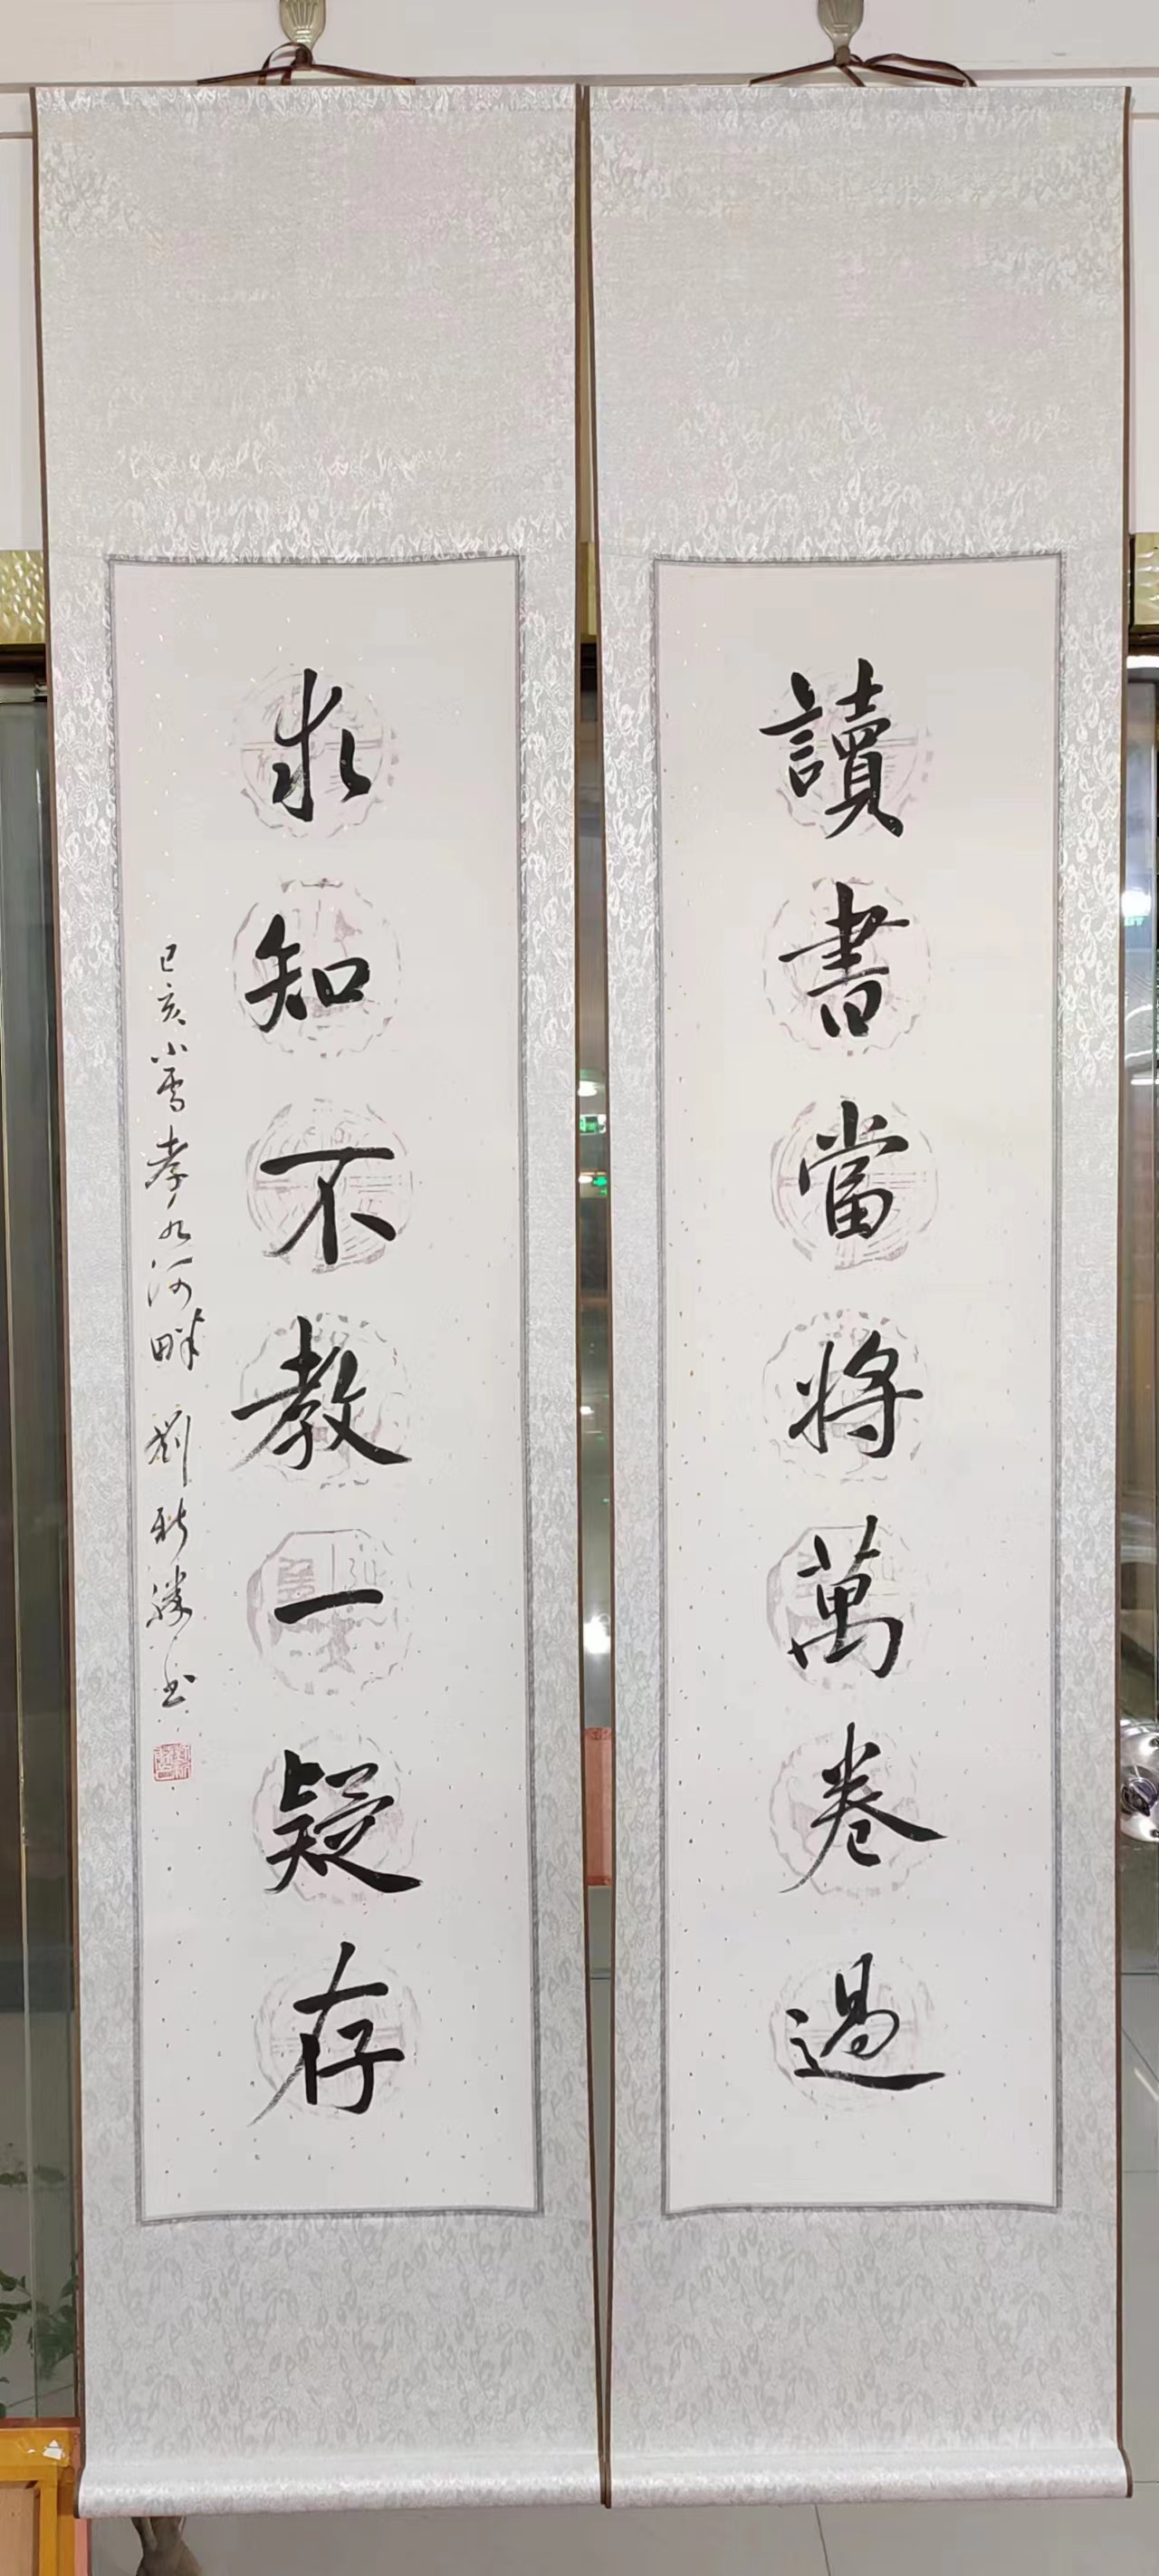 讀書當將萬卷過
求知不教一疑存
己亥小雪孝水河畔劉新勝书